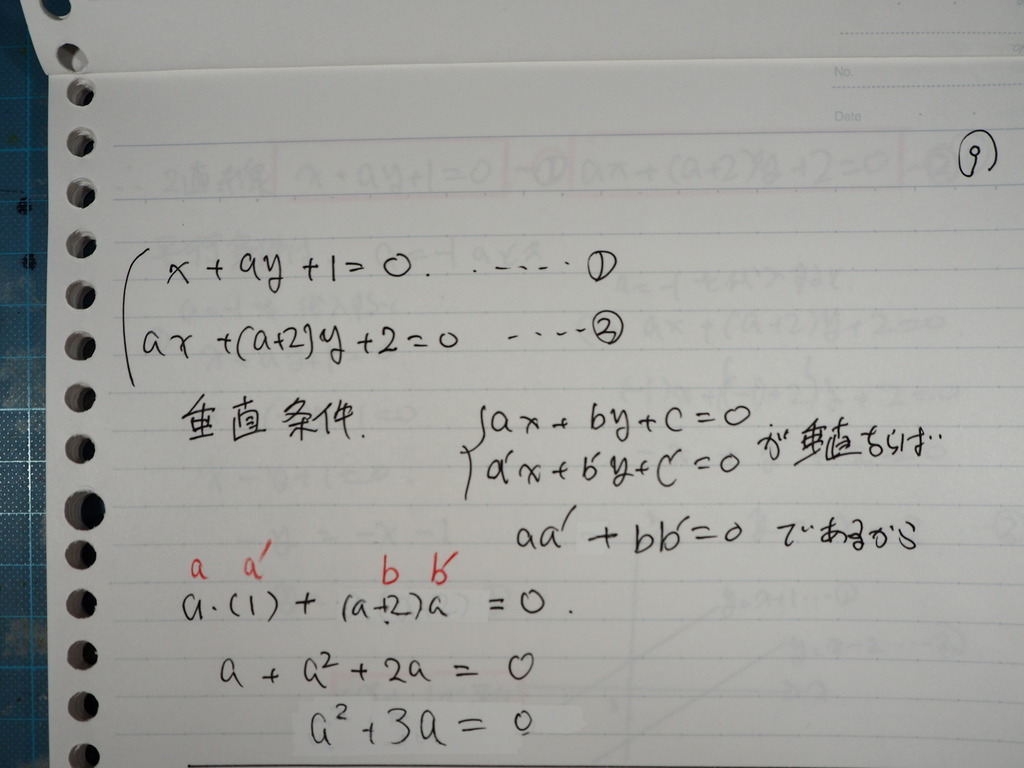 No.
Date
⑨
x + ay + 1 = 0 . ‥‥‥ ①
ax + (a+2)y + 2 = 0 ‥‥‥ ②
垂直条件.
ax + by + c = 0
a'x + b'y + c' = 0 が垂直ならば‥
aa' + bb' = 0 であるから
a a' b b'
a・(1) + (a+2)a = 0 .
a + a² + 2a = 0
a² + 3a = 0